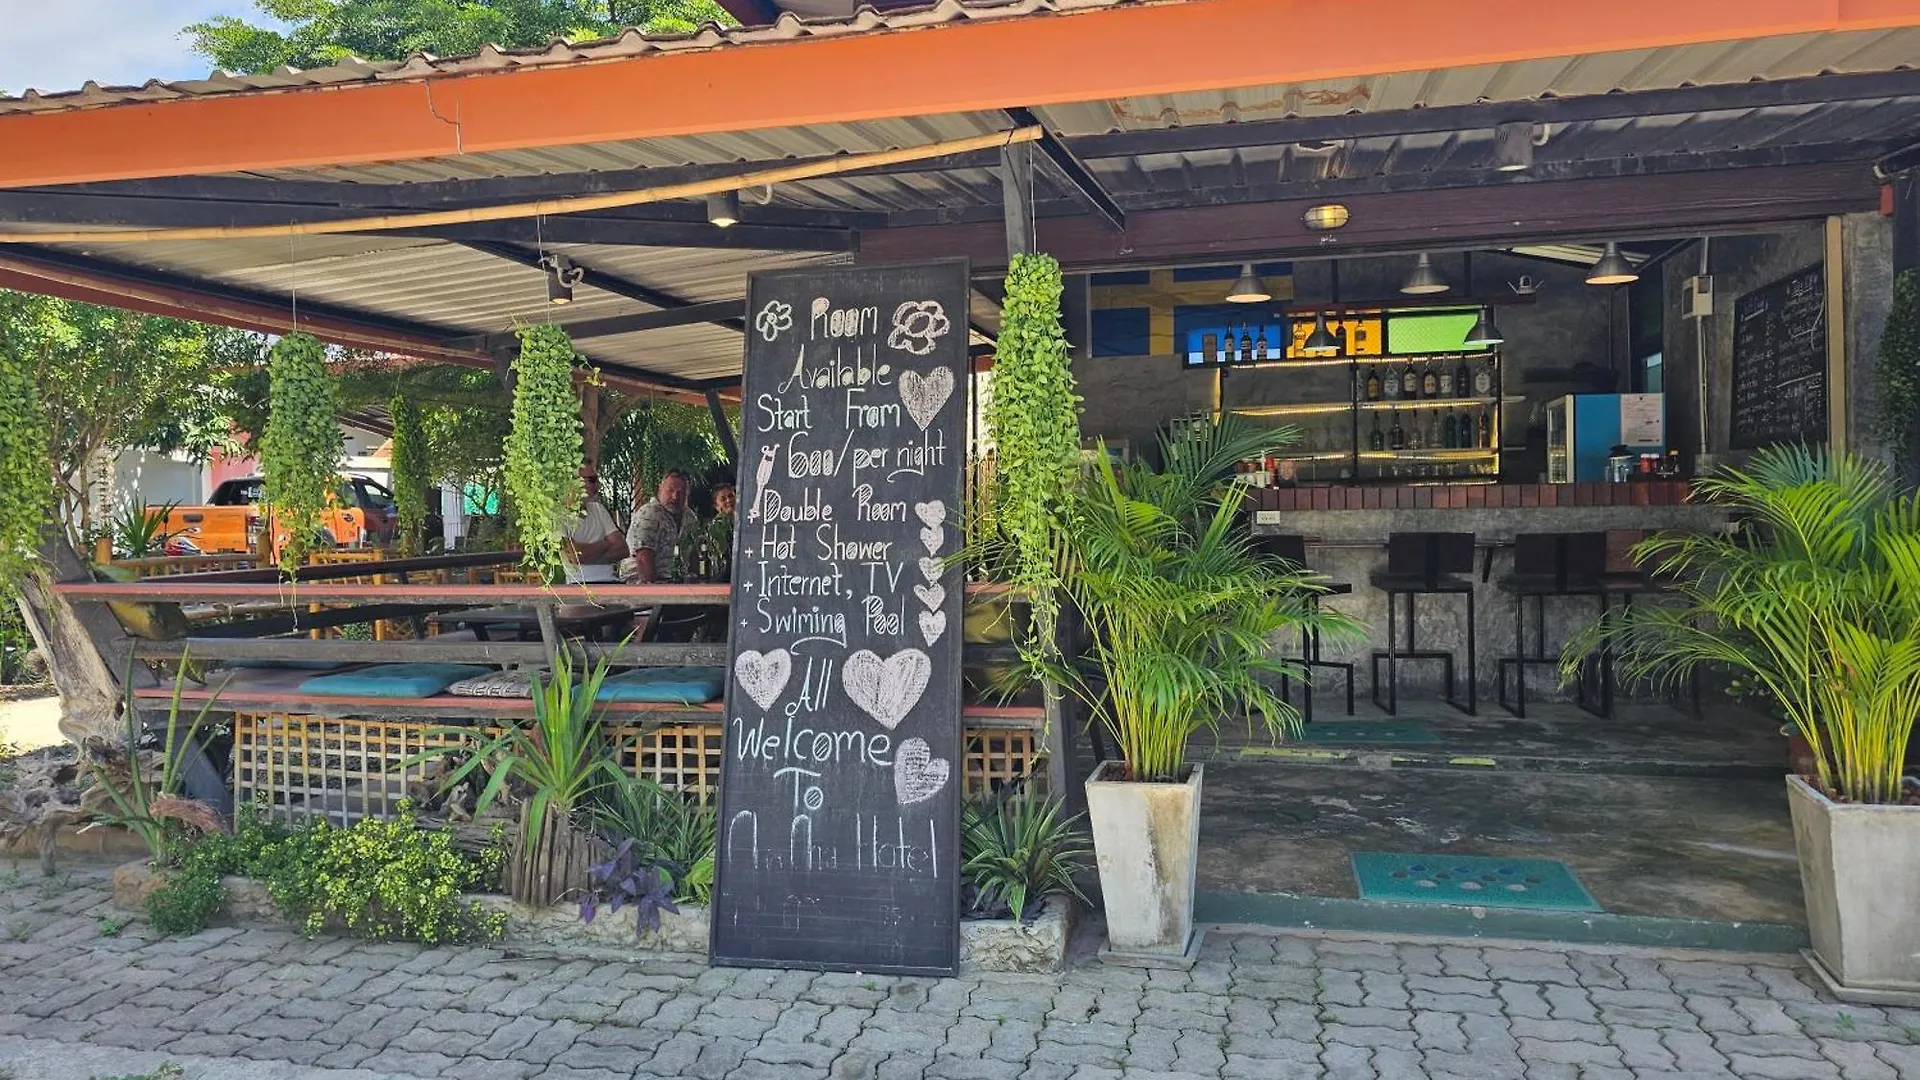 Room
Available
Start From
600/per night
+ Double Room
+ Hot Shower
+ Internet, TV
+ Swiming Pool
All
Welcome
To
Hotel